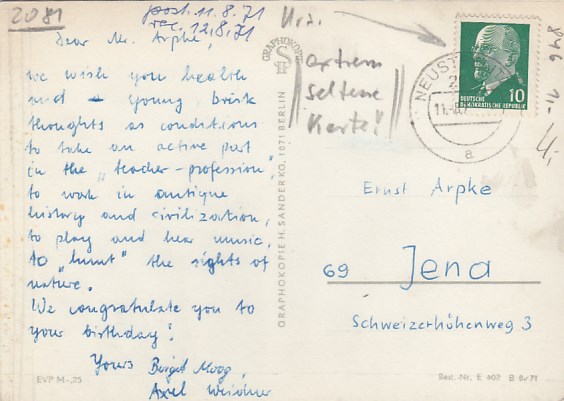 2081
post. 11.8.71
rec. 12.8.71
Dear Mr. Arpke,
we wish you health
and young brisk
thoughts as conditions
to take an active part
in the „teacher-profession",
to work in antique
history and civilization,
to play and hear music,
to „hunt" the sights of
nature.
We congratulate you to
your birthday!
Yours Birgit Moog,
Axel Weidner
EVP M -,25
GRAPHOKOPIE
GRAPHOKOPIE H. SANDER KG, 1071 BERLIN
extrem
seltene
Karte!
NEUST
11.
a
10
DEUTSCHE
DEMOKRATISCHE REPUBLIK
846
1,-
Ernst Arpke
69 Jena
Schweizerhöhenweg 3
Best.-Nr. E 402 B 8/71